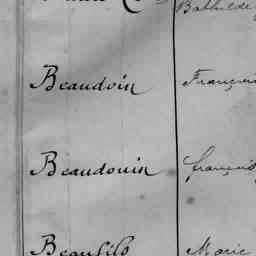 Bathilde
Beaudvin François
Beaudouin françois
Marie